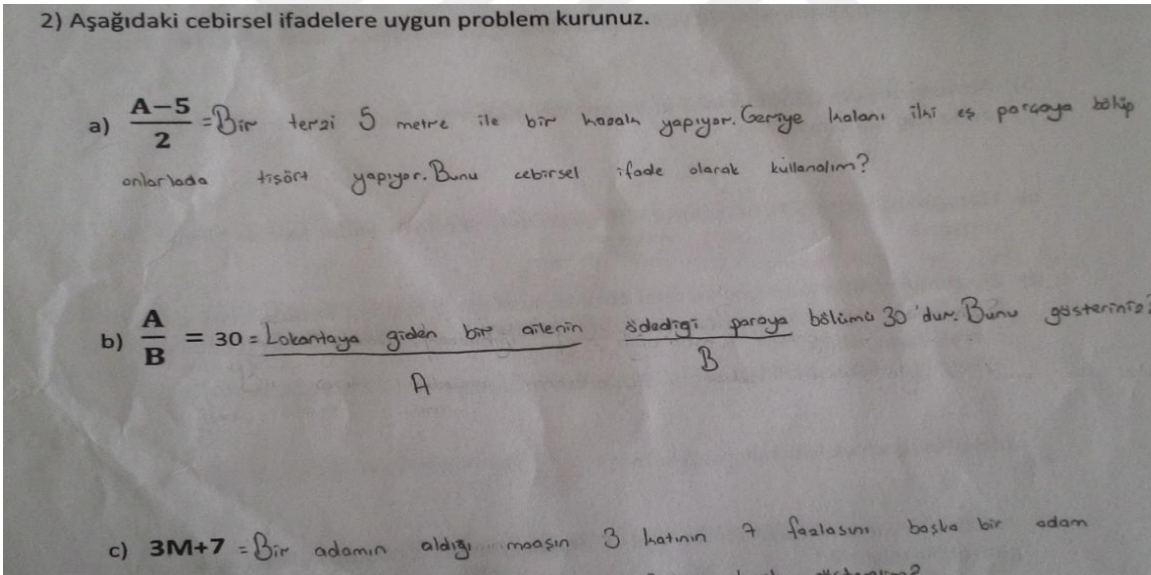 2) Aşağıdaki cebirsel ifadelere uygun problem kurunuz.
a) A-5 / 2 = Bir terzi 5 metre ile bir kazak yapıyor. Geriye kalanı iki eş parçaya bölüp
onlarlada tişört yapıyor. Bunu cebirsel ifade olarak küllanalım?
b) A / B = 30 = Lokantaya giden bir ailenin ödediği paraya bölümü 30'dur. Bunu gösteriniz?
A B
c) 3M+7 = Bir adamın aldığı maaşın 3 katının 7 fazlasını başka bir adam